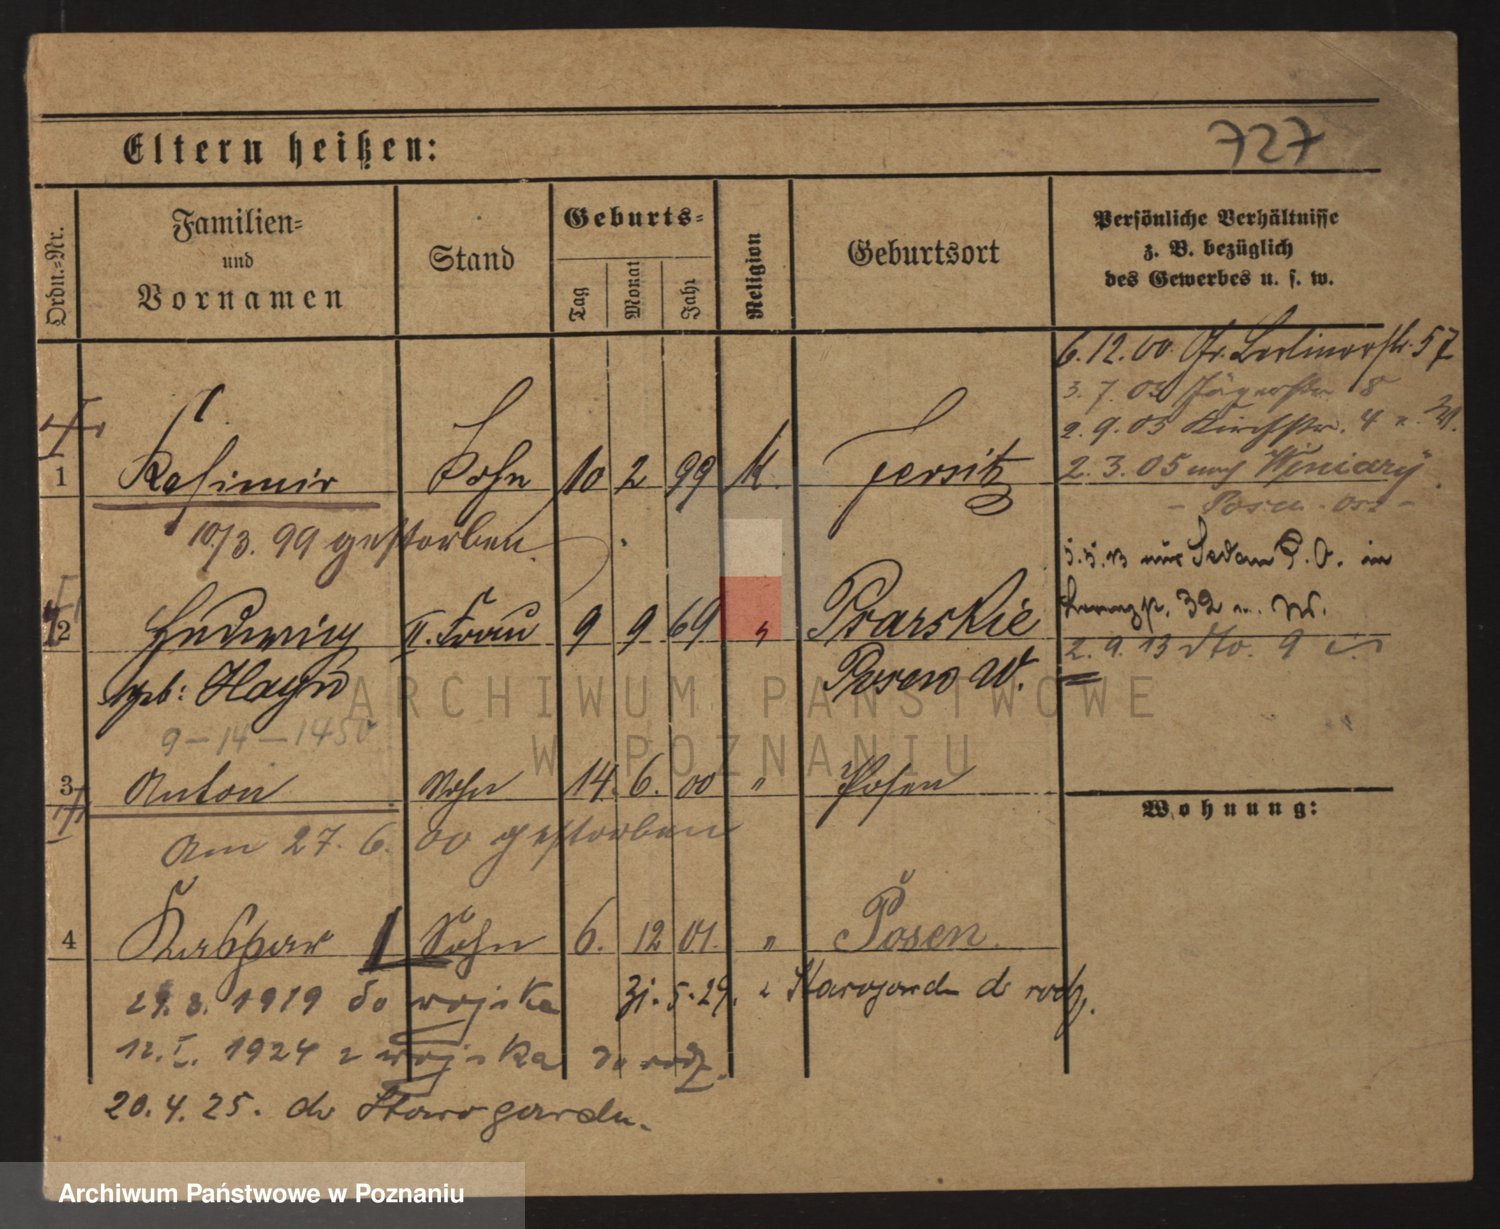 Eltern heißen:
727
Ordn.=Nr.
Familien=
und
Vornamen
Stand
Geburts=
Tag
Monat
Jahr
Religion
Geburtsort
Persönliche Verhältnisse
z. B. bezüglich
des Gewerbes u. s. w.
6.12.00 Gr. Berlinerstr. 57
3.7.03 Jägerstr. 8
2.9.03 Kirchstr. 4
1 Kasimir Sohn 10 2 99 K. Jersitz
2.3.05 nach Winiary
- Posen-Ost -
10/3. 99 gestorben
5.5.13 aus Sedan P.O. in
2 Hedwig II. Frau 9 9 69 " Psarskie
32 u. W.
geb: Posen W.
2.9.13 dto. 9
9-14-1450
3 Anton Sohn 14. 6. 00 " Posen
Wohnung:
Am 27. 6. 00 gestorben
4 Kaspar Sohn 6. 12 01. " Posen
8. 1919 do wojska
31.5.29. z Starogardu do rodz.
12.I. 1924 z wojska do rodz.
20.4.25. do Starogardu.
ARCHIWUM PAŃSTWOWE
W POZNANIU
Archiwum Państwowe w Poznaniu